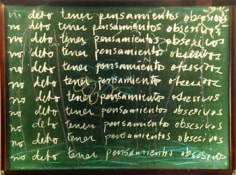 no debo tener pensamientos obsesivos
no debo tener pensamientos obsesivos
no debo tener pensamientos obsesivos
no debo tener pensamiento obsesivos
no debo tener pensamientos obsesivos
no debo tener pensamientos obsesivos
no debo tener pensamientos obsesivos
no debo tener pensamientos obsesivos
no debo tener pensamientos obsesivos
no debo tener pensamientos obsesivos